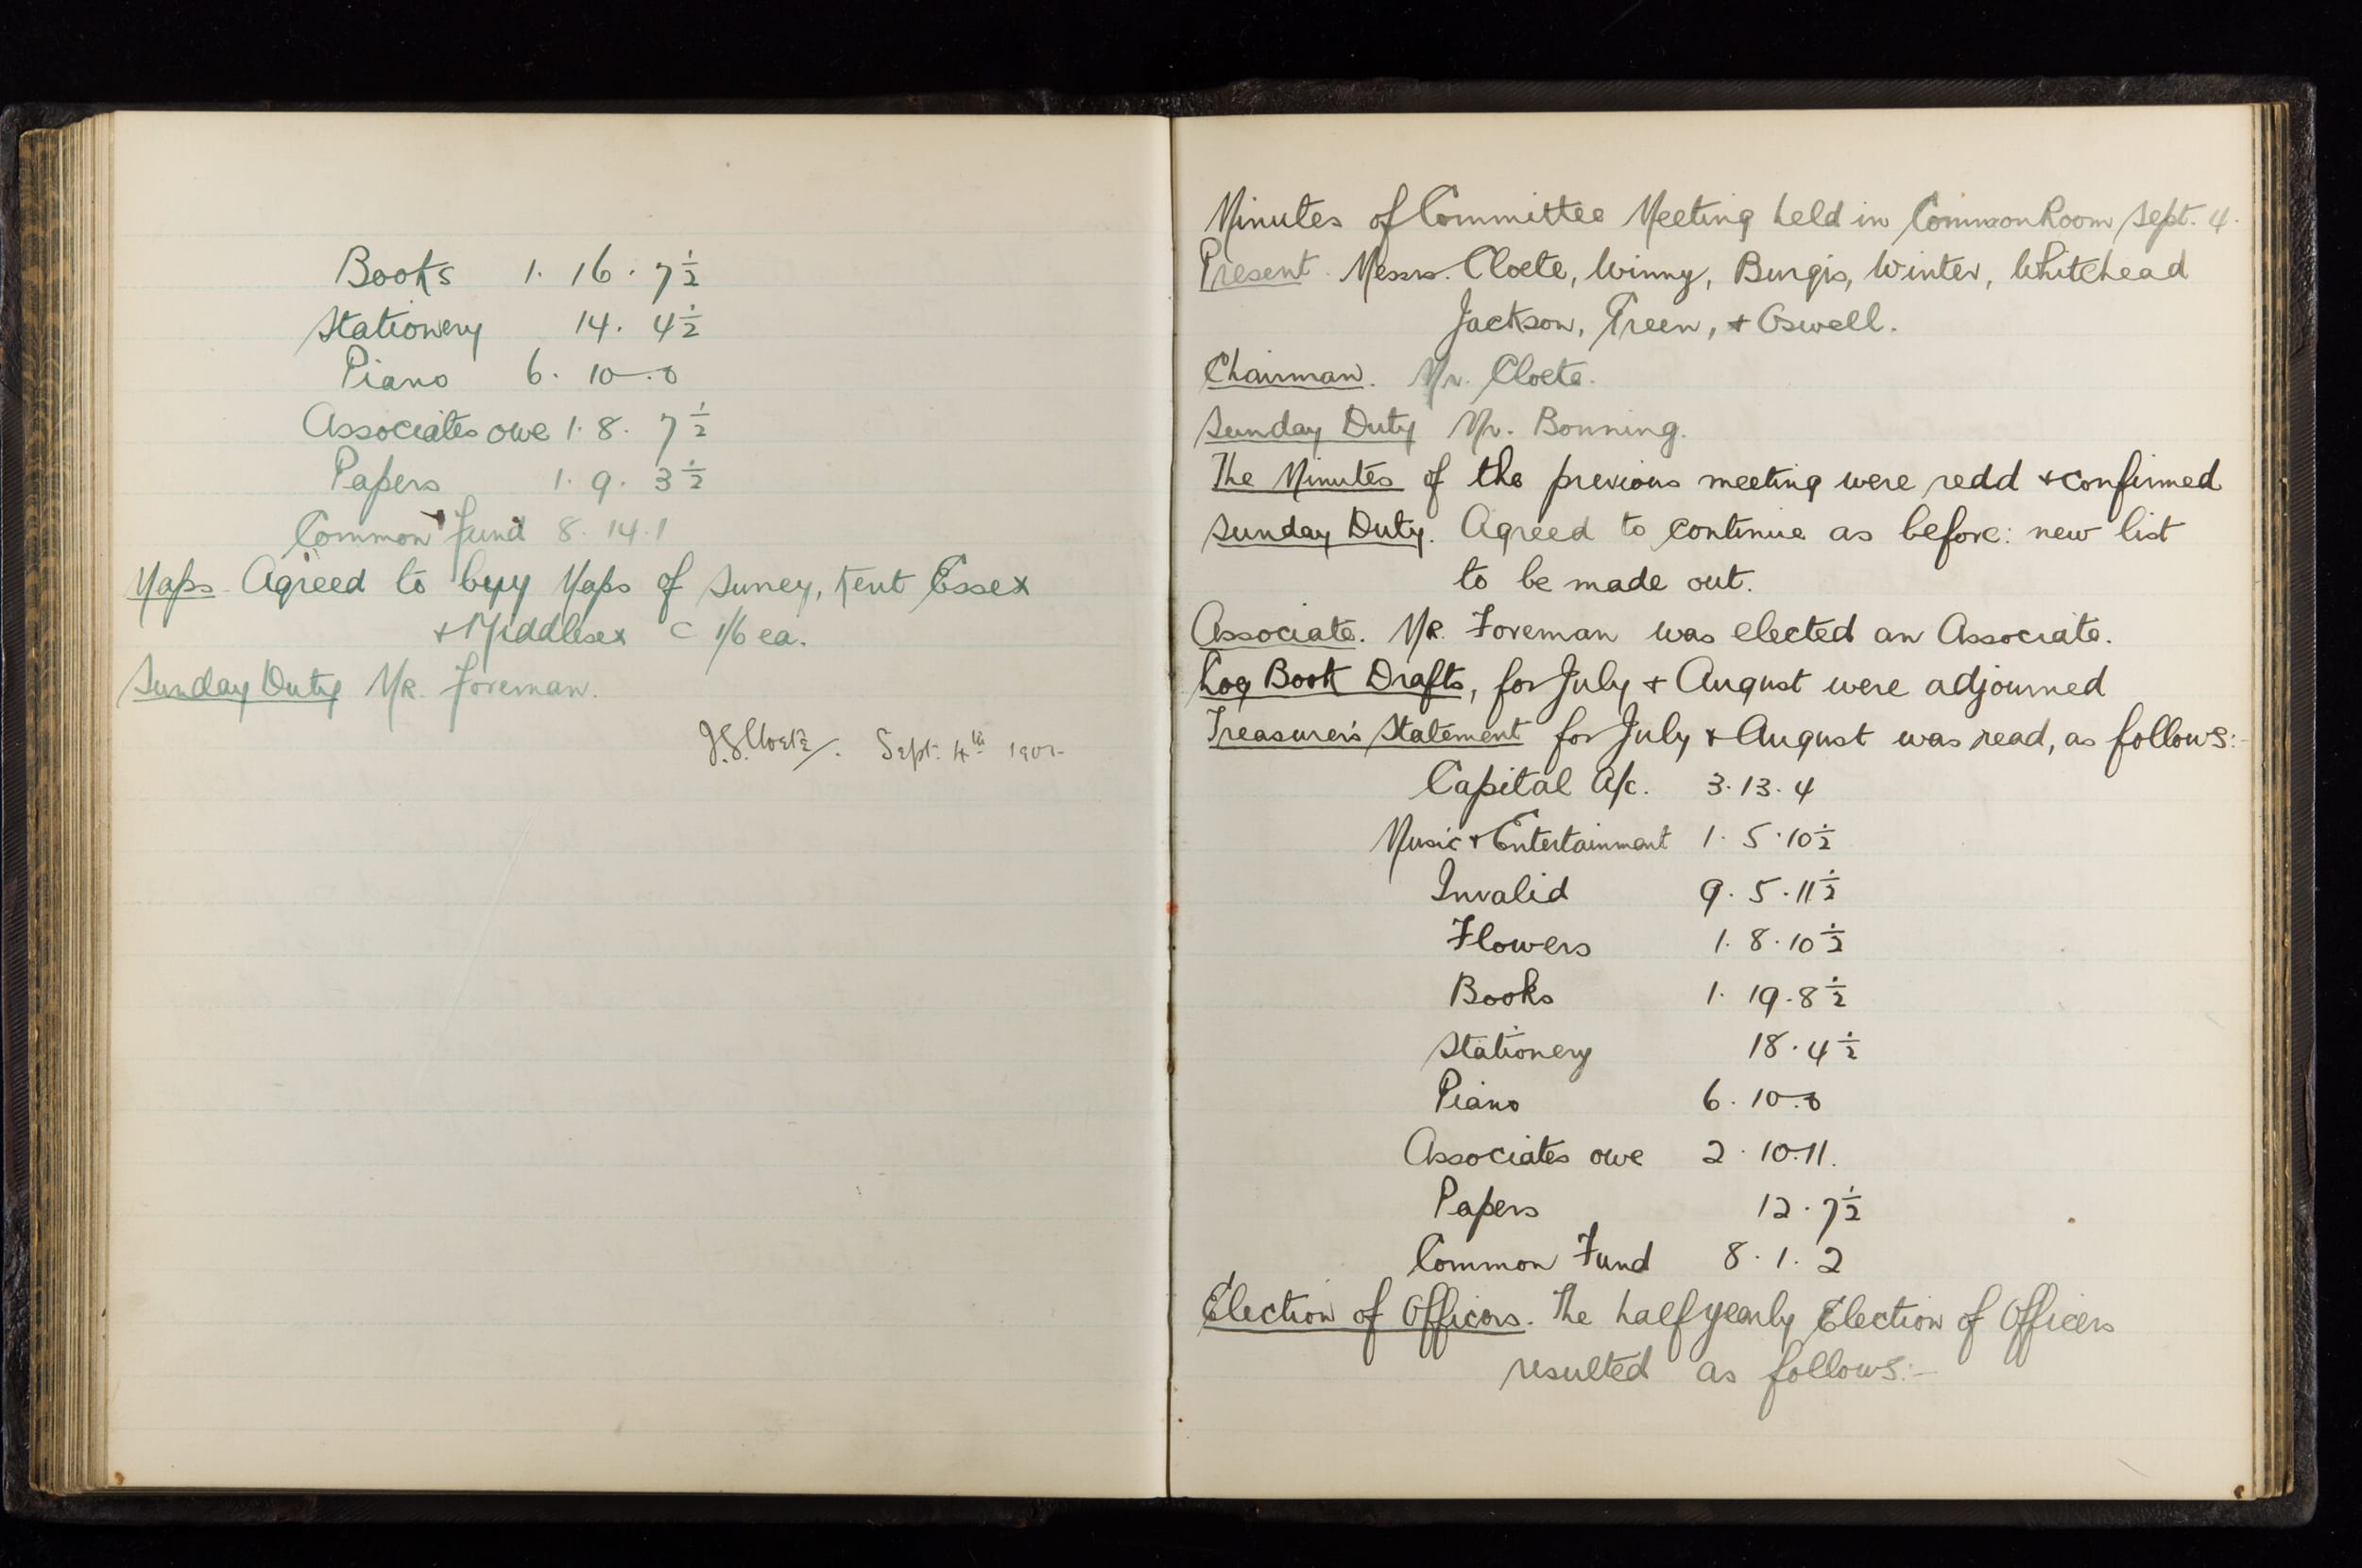 Books 1. 16. 7½
Stationery 14. 4½
Piano 6. 10. 0
Associates owe 1. 8. 7½
Papers 1. 9. 3½
Common Fund 8. 14. 1
Maps. Agreed to buy Maps of Surrey, Kent Essex
+ Middlesex @ 1/6 ea.
Sunday Duty Mr. Foreman.
J.S. Cloete. Sept. 4th
Minutes of Committee Meeting held in Common Room Sept. 4.
Present. Messrs. Cloete, Winny, Burgis, Winter, Whitehead
Jackson, Treen, + Oswell.
Chairman. Mr. Cloete.
Sunday Duty Mr. Bonning.
The Minutes of the previous meeting were redd + confirmed
Sunday Duty. Agreed to continue as before: new list
to be made out.
Associate. Mr. Foreman was elected an Associate.
Log Book Drafts, for July + August were adjourned
Treasurer's Statement for July + August was read, as follows:-
Capital A/c. 3. 13. 4
Music + Entertainment 1. 5. 10½
Invalid 9. 5. 11½
Flowers 1. 8. 10½
Books 1. 19. 8½
Stationery 18. 4½
Piano 6. 10. 0
Associates owe 2. 10. 11.
Papers 12. 7½
Common Fund 8. 1. 2
Election of Officers. The half yearly Election of Officers
resulted as follows:-